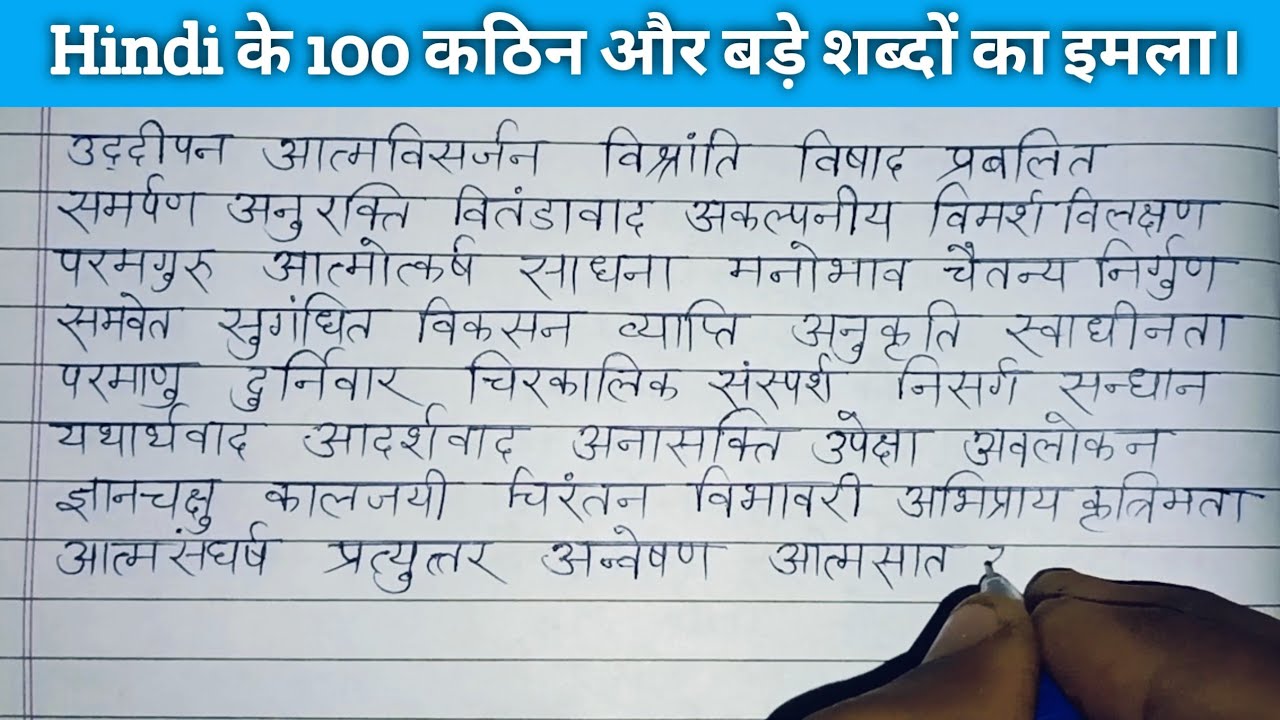 Hindi के 100 कठिन और बड़े शब्दों का इमला।
उद्दीपन आत्मविसर्जन विश्रांति विषाद प्रबलित
समर्पण अनुरक्ति वितंडावाद अकल्पनीय विमर्श विलक्षण
परमगुरु आत्मोत्कर्ष साधना मनोभाव चैतन्य निर्गुण
समवेत सुगंधित विकसन व्याप्ति अनुकृति स्वाधीनता
परमाणु दुर्निवार चिरकालिक संस्पर्श निसर्ग सन्धान
यथार्थवाद आदर्शवाद अनासक्ति उपेक्षा अवलोकन
ज्ञानचक्षु कालजयी चिरंतन विभावरी अभिप्राय कृत्रिमता
आत्मसंघर्ष प्रत्युत्तर अन्वेषण आत्मसात